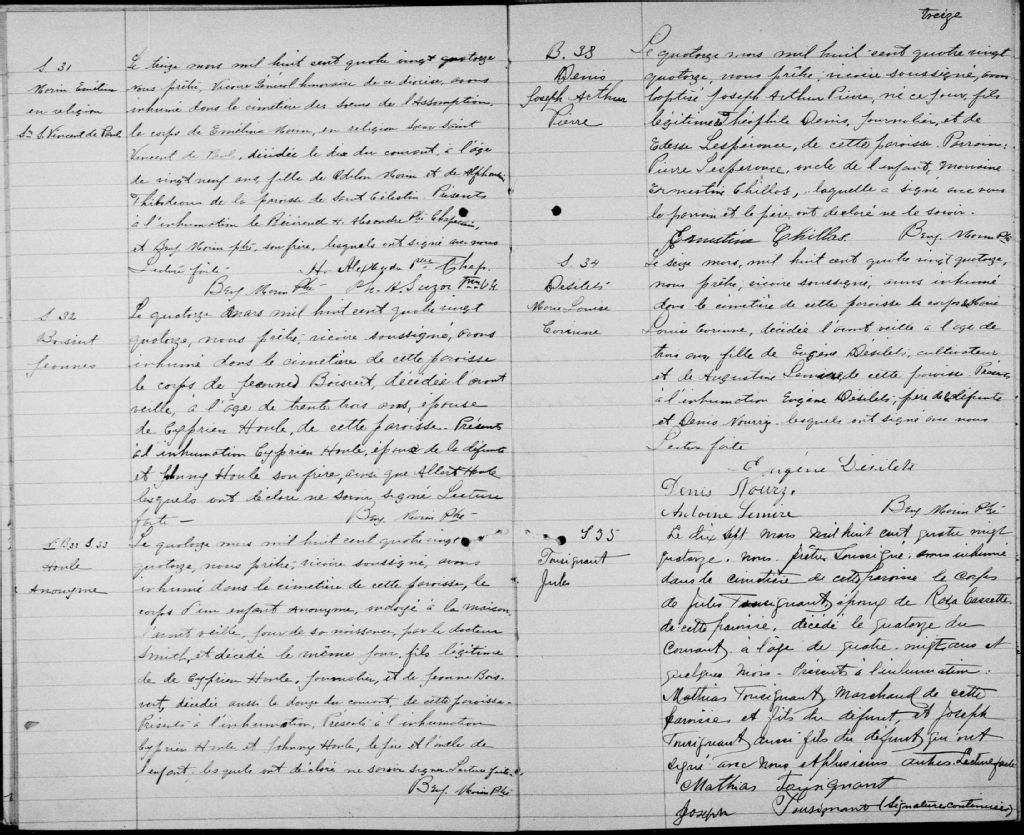 S. 31
Morin Emélina
en religion
Sr. S. Vincent de Paul
Le treize mars mil huit cent quatre vingt quatorze
nous prêtre, Vicaire Général honoraire de ce diocèse, avons
inhumé dans le cimetière des Soeurs de l'Assomption,
le corps de Emélina Morin, en religion Soeur Saint
Vincent de Paul, décédée le dix du courant, à l'âge
de vingt neuf ans, fille de Odilon Morin et de
Thibodeau de la paroisse de Saint Célestin. Présents
à l'inhumation le Révérend H. Alexandre Ptre Chapelain,
et Benj. Morin ptre, son frère, lesquels ont signé avec nous
Lecture faite. H. Alexandre Ptre Chap.
Benj. Morin Ptre Ph. H. Suzor Ptre V.G.
S. 32
Boisvert
Jeannes
Le quatorze mars mil huit cent quatre vingt
quatorze, nous prêtre, vicaire soussigné, avons
inhumé dans le cimetière de cette paroisse
le corps de Jeanned Boisvert, décédée l'avant
veille, à l'âge de trente trois ans, épouse
de Cyprien Houle, de cette paroisse. Présents
à l'inhumation Cyprien Houle, époux de la défunte
et Johnny Houle son frère, ainsi que Albert Houle
lesquels ont déclaré ne savoir signé Lecture
faite — Benj. Morin Ptre
S. 33
Houle
Anonyme
Le quatorze mars mil huit cent quatre vingt
quatorze, nous prêtre, vicaire soussigné, avons
inhumé dans le cimetière de cette paroisse, le
corps d'un enfant Anonyme, ondoyé à la maison
l'avant veille, jour de sa naissance, par le docteur
Smith, et décédé le même jour, fils légitime
de de Cyprien Houle, journalier, et de Jeanne Bois-
vert, décédée aussi le douze du courant, de cette paroisse.
Présents à l'inhumation, Présents à l'inhumation
Cyprien Houle et Johnny Houle, le père et l'oncle de
l'enfant, lesquels ont déclaré ne savoir signer. Lecture faite.
Benj. Morin Ptre
treize
B. 38
Denis
Joseph Arthur
Pierre
Le quatorze mars mil huit cent quatre vingt
quatorze, nous prêtre, vicaire soussigné, avons
baptisé Joseph Arthur Pierre, né ce jour, fils
légitime Théophile Denis, journalier, et de
Edesse Lespérance, de cette paroisse. Parrain:
Pierre Lespérance, oncle de l'enfant, marraine
Ernestine Chillas, laquelle a signé avec nous
le parrain et le père ont déclaré ne le savoir.
Ernestine Chillas. Benj. Morin Ptre
S. 34
Désilets
Marie Louise
Corinne
Le seize mars, mil huit cent quatre vingt quatorze,
nous prêtre, vicaire soussigné, avons inhumé
dans le cimetière de cette paroisse le corps de Marie
Louise Corinne, décédée l'avant veille à l'âge de
trois ans, fille de Eugène Désilets, cultivateur
et de Augustine Lemire, de cette paroisse. Présents
à l'inhumation Eugène Désilets, père de la défunte
et Denis Nourry, lesquels ont signé avec nous
Lecture faite
Eugène Désilets
Denis Nourry.
Antoine Lemire Benj. Morin Ptre
S 35
Tousignant
Jules
Le dix sept mars mil huit cent quatre vingt
quatorze, nous, prêtre soussigné, avons inhumé
dans le cimetière de cette paroisse le corps
de Jules Tousignant, époux de Rose Cassette
de cette paroisse, décédé le quatorze du
courant, à l'âge de quatre-vingt ans et
quelques mois. Présents à l'inhumation:
Mathias Tousignant, Marchand de cette
paroisse et fils du défunt, et Joseph
Tousignant aussi fils du défunt, qui ont
signé avec nous et plusieurs autres. Lecture faite
Mathias Tousignant
Joseph Tousignant (Signature continuées)